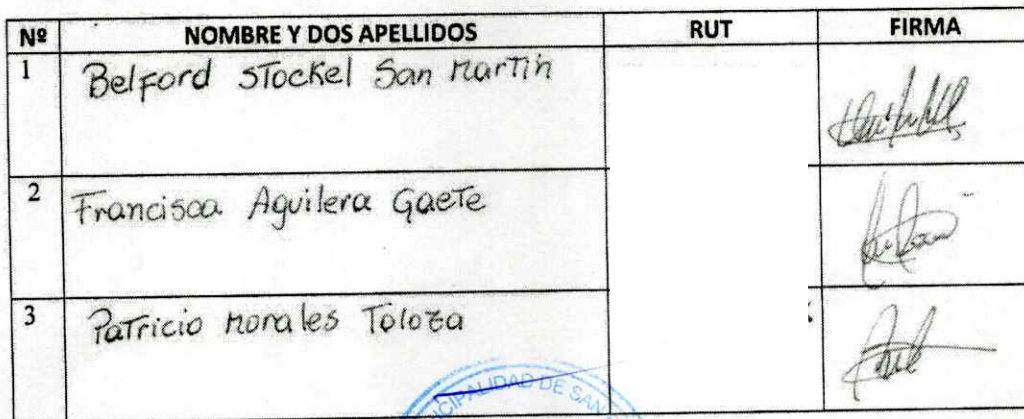 Nº NOMBRE Y DOS APELLIDOS RUT FIRMA
1 Belford Stockel San Martin
2 Francisca Aguilera Gaete
3 Patricio Morales Toloza
CIPALIDAD DE SAN